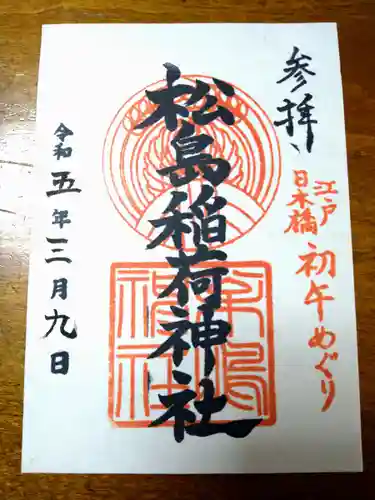 参拝、
江戸
日本橋
初午めぐり
松島稲荷神社
松島
神社
令和五年三月九日